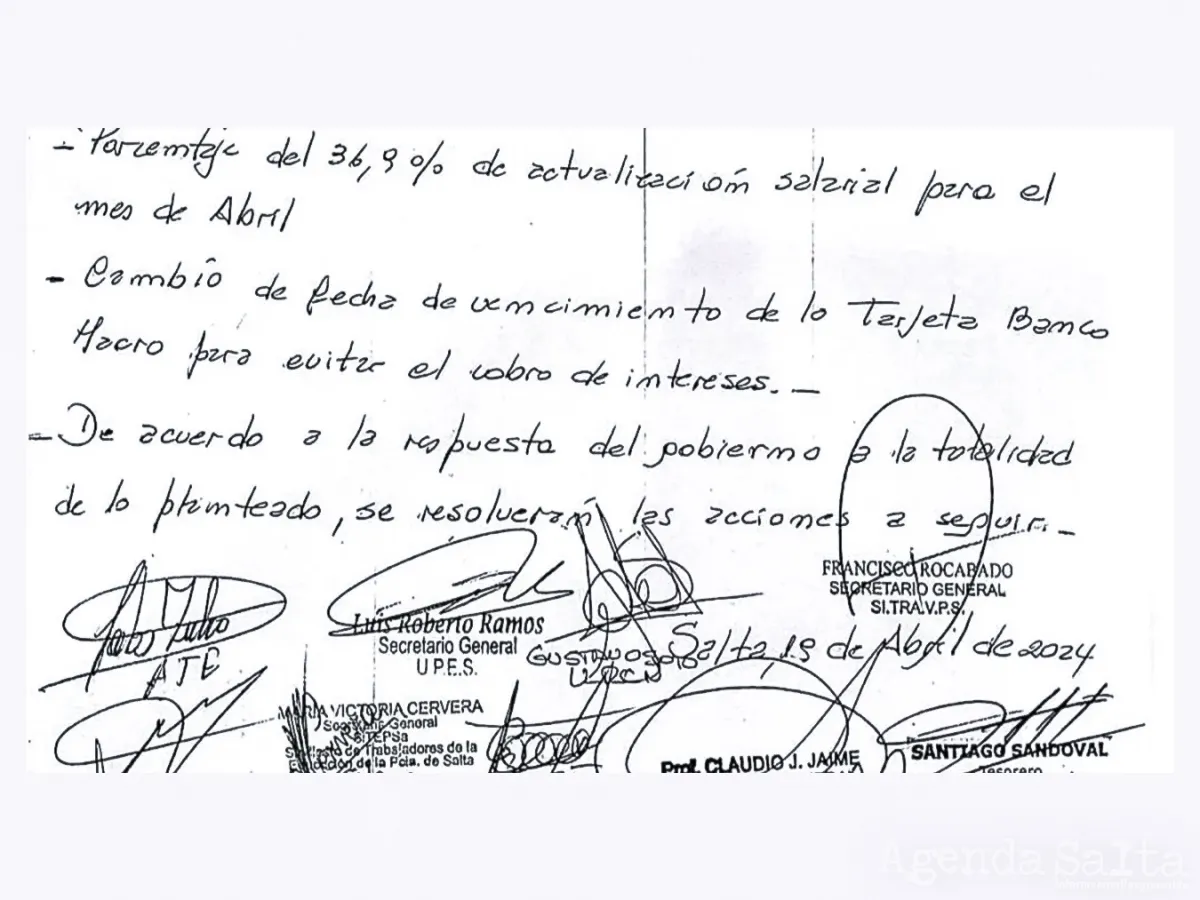 - Porcentaje del 36,9% de actualización salarial para el
mes de Abril
- Cambio de fecha de vencimiento de la Tarjeta Banco
Macro para evitar el cobro de intereses. -
- De acuerdo a la respuesta del gobierno a la totalidad
de lo planteado, se resolverán las acciones a seguir. -
FRANCISCO ROCABADO
SECRETARIO GENERAL
SI.TRA.V.P.S.
Luis Roberto Ramos
Secretario General
U.P.E.S.
Julio
ATE
GUSTAVO
UPCN
Salta 19 de Abril de 2024
MARIA VICTORIA CERVERA
Secretaria General
SITEPSa
Sindicato de Trabajadores de la
Educación de la Pcia. de Salta
Prof. CLAUDIO J. JAIME
SANTIAGO SANDOVAL
Tesorero
Agenda Salta